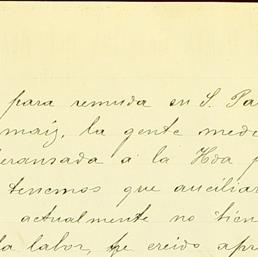 para remuda en S. Pa
maiz, la gente medi
eransada a la Hda p
tenemos que auciliar
actualmente no tien
la labor, he creido apr